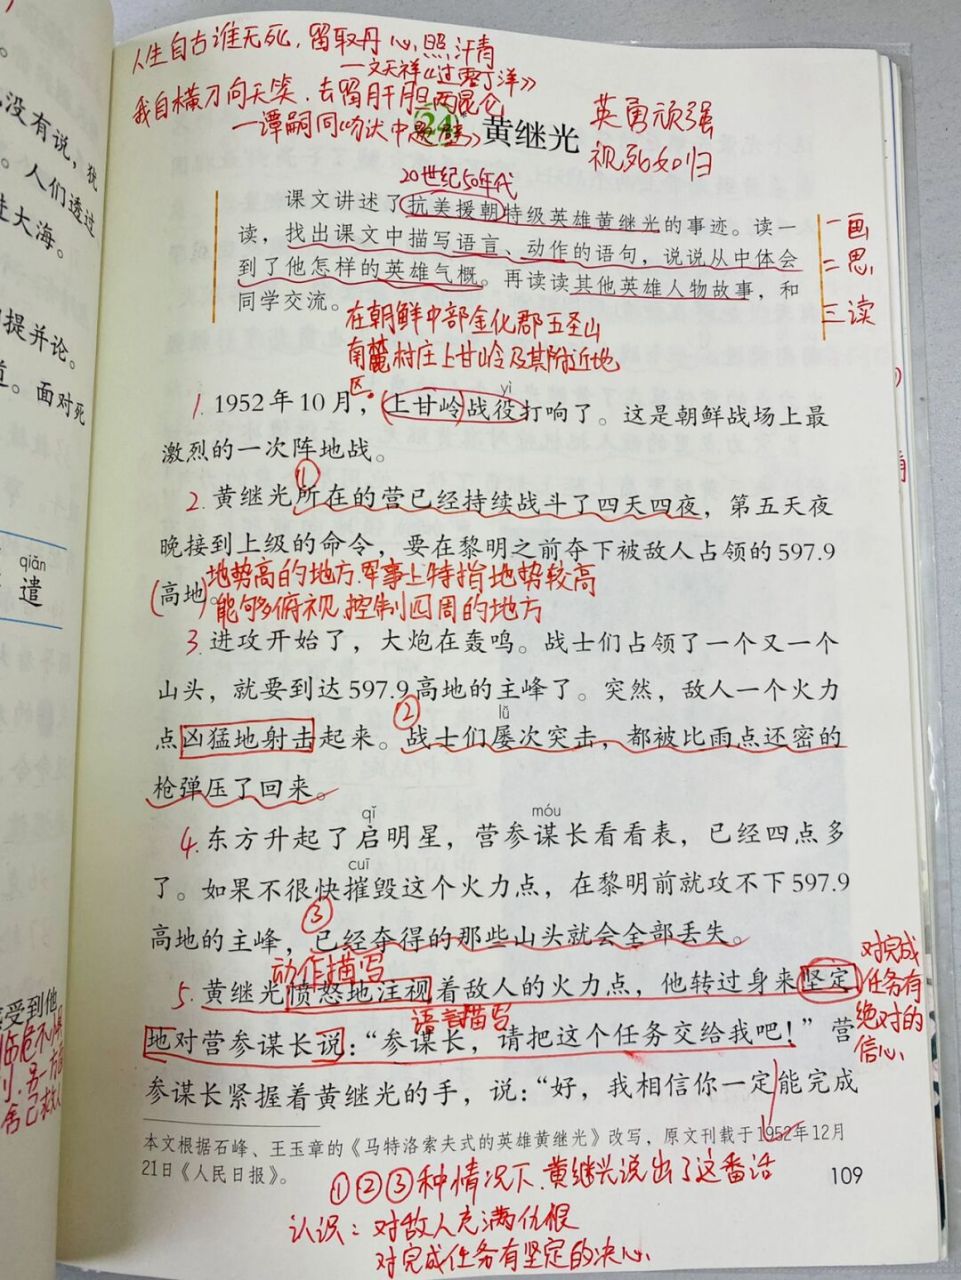 人生自古谁无死，留取丹心照汗青
—文天祥《过零丁洋》
我自横刀向天笑，去留肝胆两昆仑
—谭嗣同《狱中题壁》
24 黄继光
英勇顽强
视死如归
20世纪50年代
课文讲述了抗美援朝特级英雄黄继光的事迹。读一
读，找出课文中描写语言、动作的语句，说说从中体会
到了他怎样的英雄气概。再读读其他英雄人物故事，和
同学交流。
一画
二思
三读
在朝鲜中部金化郡五圣山
南麓村庄上甘岭及其附近地
区。
yì
1. 1952年10月，上甘岭战役打响了。这是朝鲜战场上最
激烈的一次阵地战。
①
2. 黄继光所在的营已经持续战斗了四天四夜，第五天夜
晚接到上级的命令，要在黎明之前夺下被敌人占领的597.9
高地。
(地势高的地方.军事上特指地势较高
)能够俯视、控制四周的地方
3. 进攻开始了，大炮在轰鸣。战士们占领了一个又一个
山头，就要到达597.9高地的主峰了。突然，敌人一个火力
② lǚ
点凶猛地射击起来。战士们屡次突击，都被比雨点还密的
枪弹压了回来。
qǐ móu
4. 东方升起了启明星，营参谋长看看表，已经四点多
cuī
了。如果不很快摧毁这个火力点，在黎明前就攻不下597.9
③
高地的主峰，已经夺得的那些山头就会全部丢失。
动作描写
5. 黄继光愤怒地注视着敌人的火力点，他转过身来坚定
语言描写
地对营参谋长说：“参谋长，请把这个任务交给我吧！”营
参谋长紧握着黄继光的手，说：“好，我相信你一定能完成
对完成
任务有
绝对的
信心
本文根据石峰、王玉章的《马特洛索夫式的英雄黄继光》改写，原文刊载于1952年12月
21日《人民日报》。
109
①②③种情况下.黄继兴说出了这番话
认识：对敌人充满仇恨
对完成任务有坚定的决心
没有说，犹
。人们透过
大海。
提并论。
。面对死
qiǎn
遣
受到他